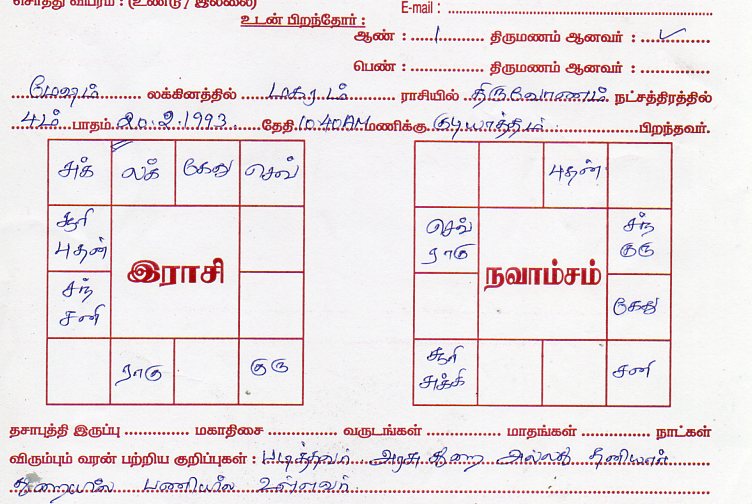 சொத்து விபரம் : (உண்டு / இல்லை)
E-mail :
உடன் பிறந்தோர் :
ஆண் : 1 திருமணம் ஆனவர் : ✓
பெண் : திருமணம் ஆனவர் :
மேஷம் லக்கினத்தில் மகரம் ராசியில் திருவோணம் நட்சத்திரத்தில்
4ம் பாதம் 20.2.1993 தேதி 10.40AM மணிக்கு குடியாத்தம் பிறந்தவர்.
சுக் லக் கேது செவ்
சூரி புதன்
சந் சனி
இராசி
ராகு குரு
புதன்
செவ் ராகு
சந் குரு
நவாம்சம்
கேது
சூரி சுக்கி
சனி
தசாபுத்தி இருப்பு மகாதிசை வருடங்கள் மாதங்கள் நாட்கள்
விரும்பும் வரன் பற்றிய குறிப்புகள் : படித்தவர் அரசு துறை அல்லது தனியார்
துறையில் பணியில் உள்ளவர்